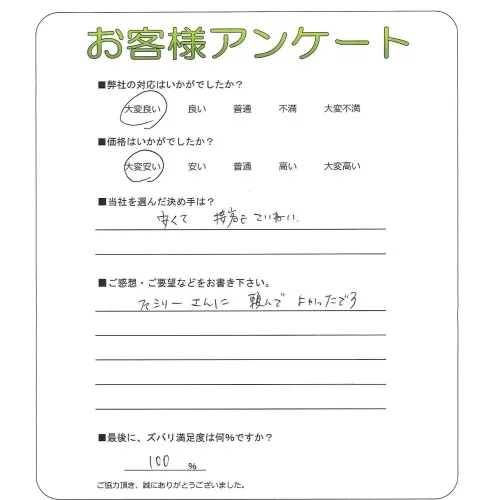 お客様アンケート
■弊社の対応はいかがでしたか？
大変良い 良い 普通 不満 大変不満
■価格はいかがでしたか？
大変安い 安い 普通 高い 大変高い
■当社を選んだ決め手は？
安くて 接客も ていねい
■ご感想・ご要望などをお書き下さい。
ファミリーさんに 頼んで よかったです
■最後に、ズバリ満足度は何%ですか？
100 %
ご協力頂き、誠にありがとうございました。